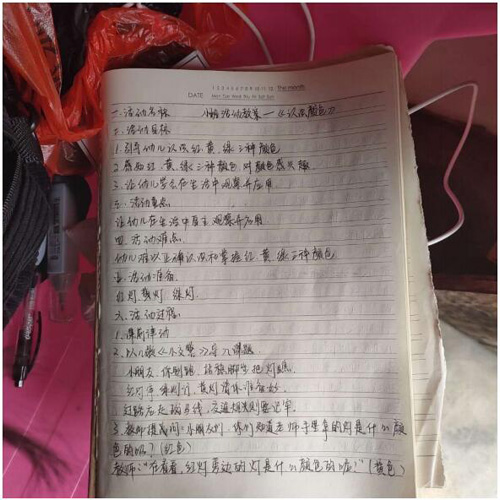 1 2 3 4 5 6 7 8 9 10 11 12 the month
DATE Mon Tue Wed Thu Fri Sat Sun
一、活动名称 小班活动教案—《认识颜色》
二、活动目标
1. 引导幼儿认识红、黄、绿三种颜色
2. 感知红、黄、绿三种颜色,对颜色感兴趣
3. 让幼儿学会在生活中观察并应用
三、活动重点
让幼儿在生活中自主观察并应用
四、活动难点
幼儿难以正确认识和掌握红、黄、绿三种颜色
五、活动准备
红灯、黄灯、绿灯
六、活动过程
1. 课前律动
2. 以儿歌《小交警》导入课题
小朋友,你别跑,站稳脚步把灯瞧
红灯停绿灯行,黄灯请你准备好
过路应走斑马线,交通规则要记牢
3. 教师提问:小朋友们,你们知道老师手里拿的灯是什么颜
色的吗?(红色)
教师:“在看看,红灯旁边的灯是什么颜色的呢?”(黄色)